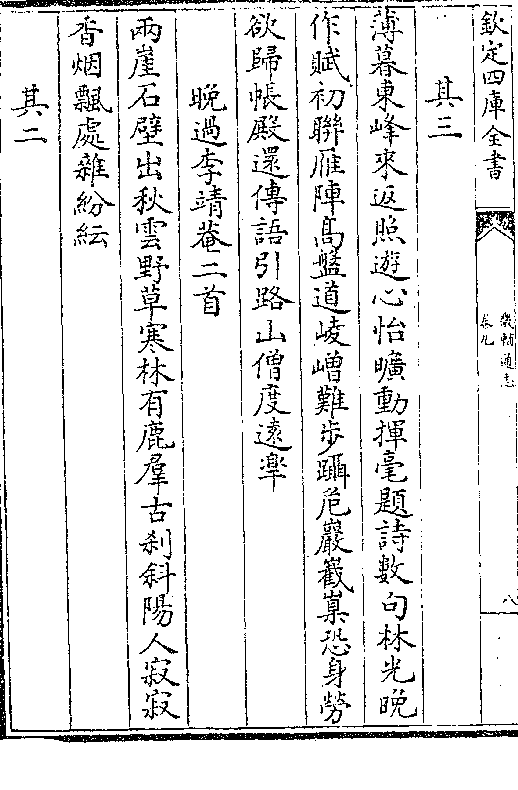 欽定四庫全書
畿輔通志
卷九
八
其三
薄暮東峰來返照遊心怡曠動揮毫題詩數句林光晚
作賦初聯雁陣髙盤道崚嶒難步躡危巖嶻嶪恐身勞
欲歸帳殿還傳語引路山僧度逺臯
晚過李靖菴二首
兩崖石壁出秋雲野草寒林有鹿羣古刹斜陽人寂寂
香烟飄處雜紛紜
其二